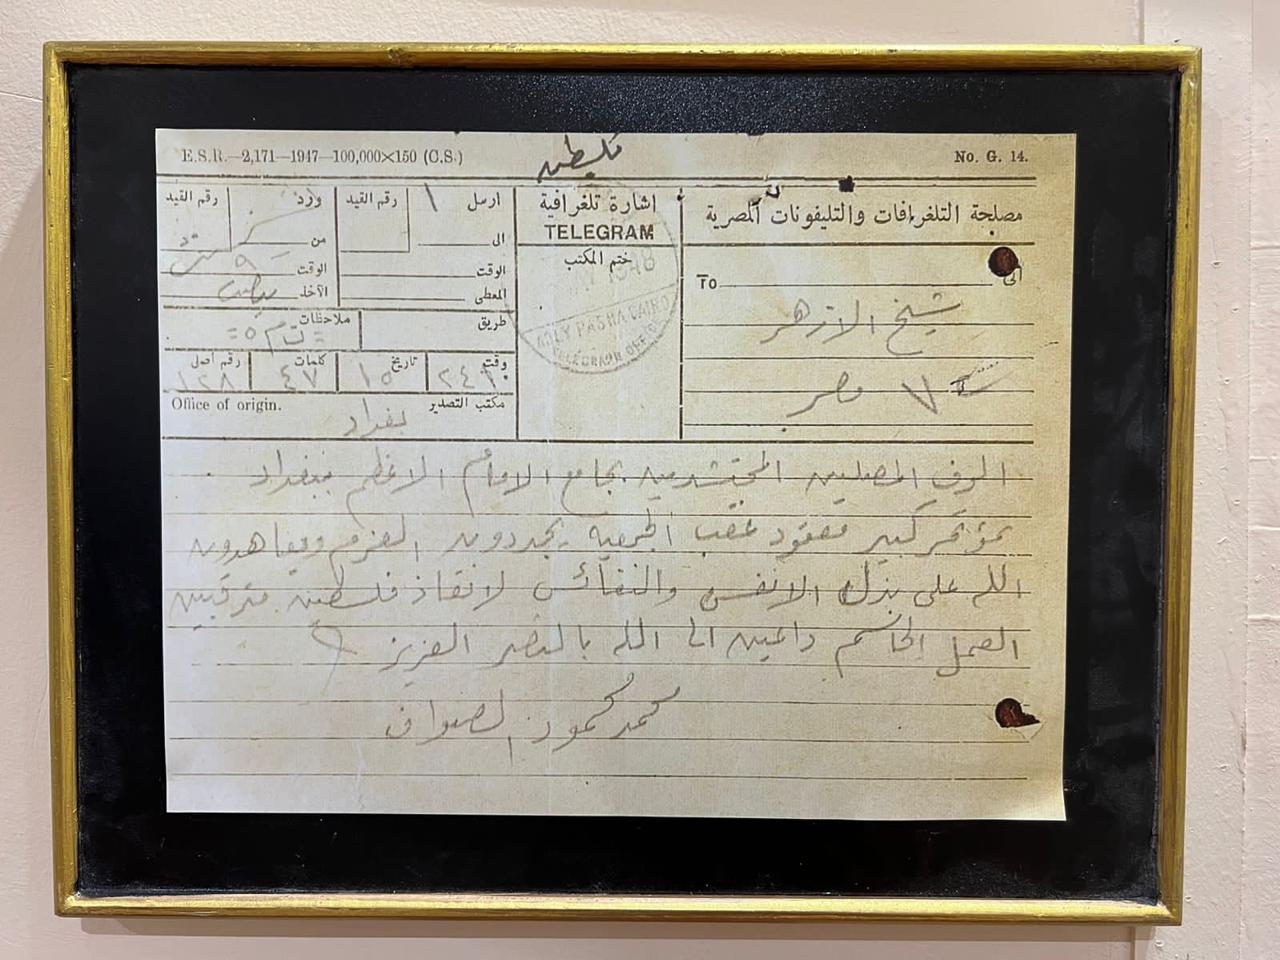 فلسطين
E.S.R.—2,171—1947—100,000×150 (C.S.)
No. G. 14.
مصلحة التلغرافات والتليفونات المصرية
الى
To
شيخ الازهر
مصر
اشارة تلغرافية
TELEGRAM
ختم المكتب
1948
ADLY PASHA CAIRO
TELEGRAPH OFFICE
ارسل
رقم القيد
الى
الوقت
المعطى
ورد
رقم القيد
من
الوقت
الآخذ
طريق
ملاحظات
وقت
تاريخ ١٥
كلمات ٤٧
رقم أصل ١٢٨
مكتب التصدير
Office of origin.
بغداد
الوف المصلين المحتشدين بجامع الامام الاعظم ببغداد
بمؤتمر كبير معقود عقب الجمعه يجددون العزم ويعاهدون
الله على بذل الانفس والنفائس لانقاذ فلسطين مترقبين
العمل الحاسم داعين الى الله بالنصر العزيز
محمد محمود الصواف